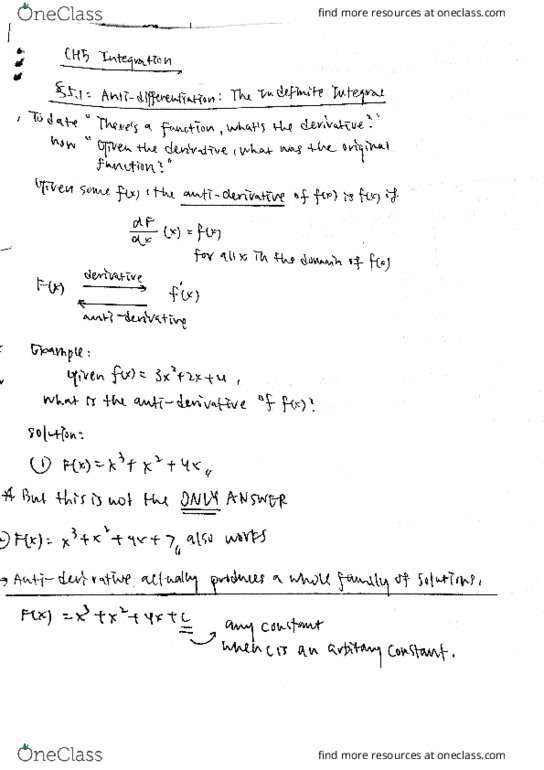 OneClass
find more resources at oneclass.com
CH5 Integration
§5.1: Anti-differentiation: The Indefinite Integral
To date "There's a function, what's the derivative?"
now "Given the derivative, what was the original
function?"
Given some f(x), the anti-derivative of f(x) is f(x) if
dF/dx (x) = f(x)
for all x in the domain of f(x)
F(x) derivative f'(x)
anti-derivative
Example:
Given f(x) = 3x²+2x+4,
what is the anti-derivative of f(x)?
solution:
① F(x) = x³ + x² + 4x
* But this is not the ONLY ANSWER
② F(x) = x³ + x² + 4x + 7, also works
→ Anti-derivative actually produces a whole family of solutions.
F(x) = x³ + x² + 4x + C
any constant
when C is an arbitary constant.
OneClass
find more resources at oneclass.com